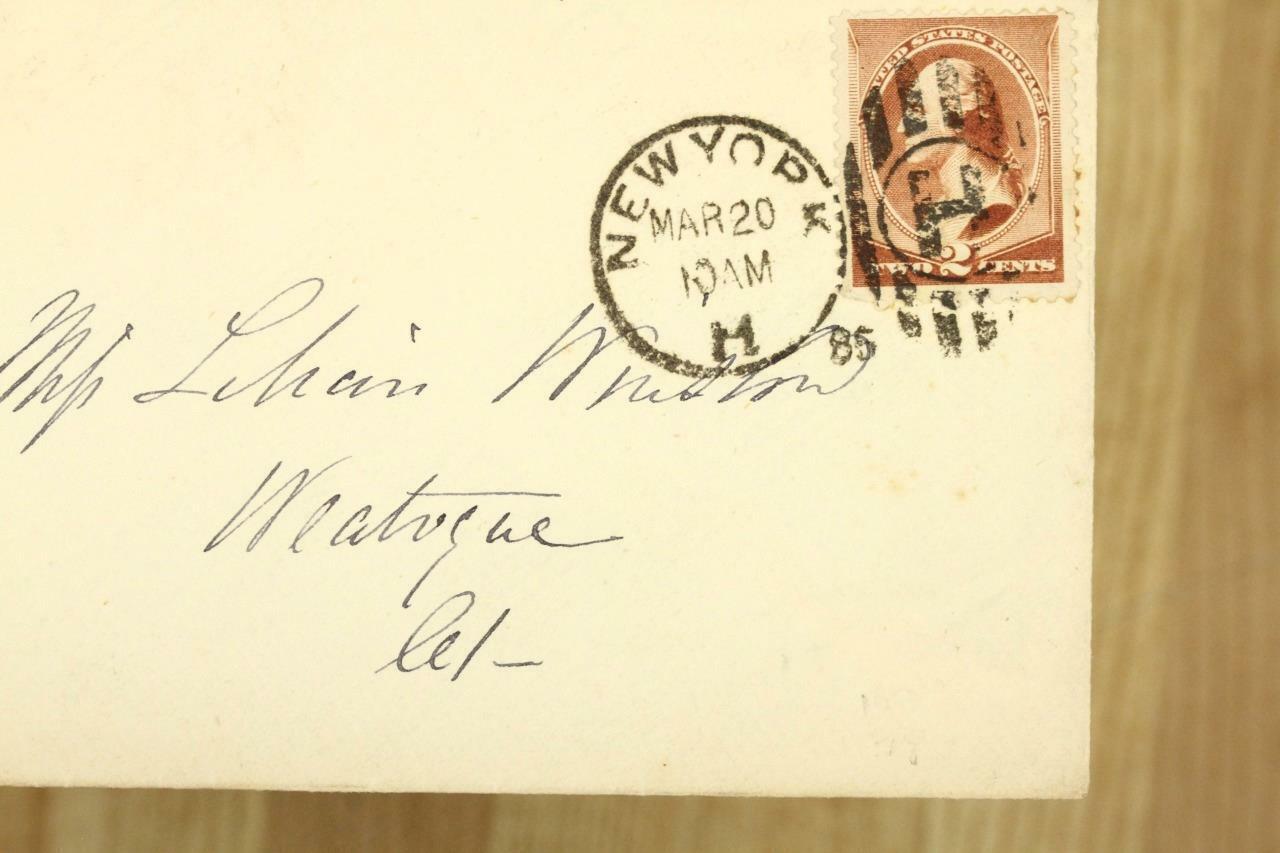 UNITED STATES POSTAGE
TWO 2 CENTS
NEW YORK
MAR 20
10 AM
H
85
Miss Lilian Winslow
Weatogue
Ct